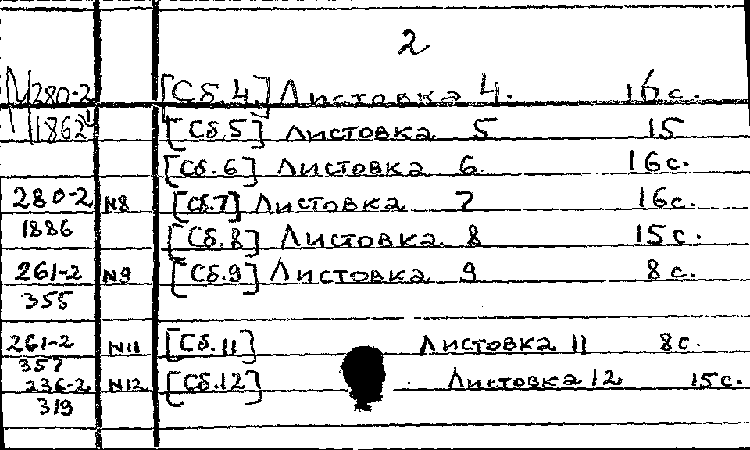 2
280-2 [Сб.4.] Листовка 4. 16с.
1862 [Сб.5] Листовка 5 15
[Сб.6] Листовка 6 16с.
280-2 N8 [Сб.7] Листовка 7 16с.
1886 [Сб.8] Листовка 8 15с.
261-2 N9 [Сб.9] Листовка 9 8с.
355
261-2 N11 [Сб.11] Листовка 11 8с.
357
236-2 N12 [Сб.12] Листовка 12 15с.
319